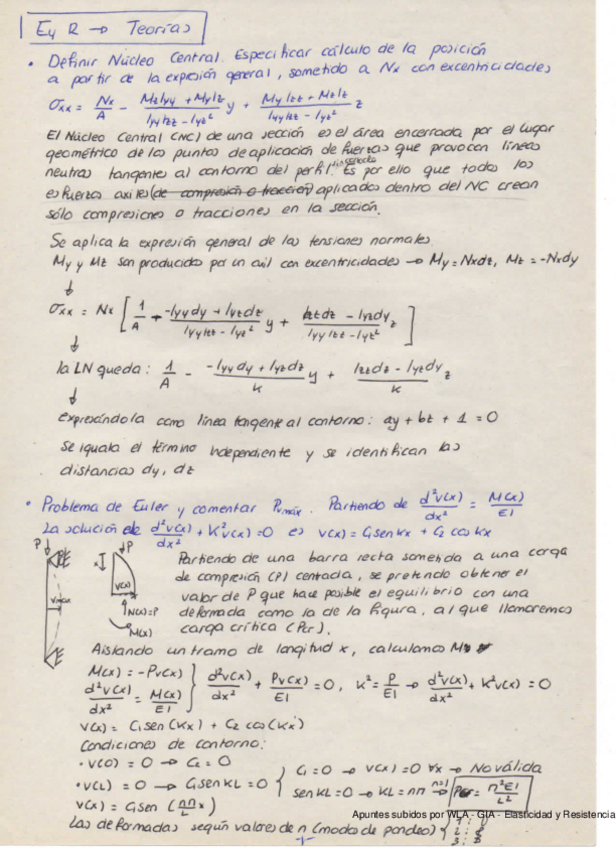 EyR → Teorías
• Definir Núcleo Central. Especificar cálculo de la posición
a partir de la expresión general, sometido a Nx con excentricidades
σxx = Nx/A - (MzIyy + MyIyz)/(IyyIzz - Iyz²) y + (MyIzz + MzIyz)/(IyyIzz - Iyz²) z
El Núcleo Central (NC) de una sección es el área encerrada por el lugar
geométrico de los puntos de aplicación de fuerzas que provocan líneas
neutras tangentes al contorno del perfil. Es por ello que todos los
esfuerzos axiles (de compresión o tracción) aplicados dentro del NC crean
sólo compresiones o tracciones en la sección.
Se aplica la expresión general de las tensiones normales.
My y Mz son producidos por un axil con excentricidades → My = Nxdz, Mz = -Nxdy
↓
σxx = Nx [ 1/A - (-Iyydy + Iyzdz)/(IyyIzz - Iyz²) y + (Izzdz - Iyzdy)/(IyyIzz - Iyz²) z ]
↓
la LN queda: 1/A - (-Iyydy + Iyzdz)/K y + (Izzdz - Iyzdy)/K z
↓
expresándola como línea tangente al contorno: ay + bz + 1 = 0
Se iguala el término independiente y se identifican las
distancias dy, dz
• Problema de Euler y comentar Pmáx. Partiendo de d²v(x)/dx² = M(x)/EI
La solución de d²v(x)/dx² + K²v(x) = 0 es v(x) = C₁sen Kx + C₂ cos Kx
P
P
x
v(x)
N(x)=P
M(x)
Partiendo de una barra recta sometida a una carga
de compresión (P) centrada, se pretende obtener el
valor de P que hace posible el equilibrio con una
deformada como la de la figura, al que llamaremos
carga crítica (Pcr).
Aislando un tramo de longitud x, calculamos M
M(x) = -Pv(x)
d²v(x)/dx² = M(x)/EI } d²v(x)/dx² + Pv(x)/EI = 0, K² = P/EI → d²v(x)/dx² + K²v(x) = 0
v(x) = C₁sen(Kx) + C₂ cos(Kx)
Condiciones de contorno:
• v(0) = 0 → C₂ = 0
• v(L) = 0 → C₁sen KL = 0 { C₁ = 0 → v(x) = 0 ∀x → No válida
sen KL = 0 → KL = nπ n=1→ Pcr = π²EI/L²
v(x) = C₁sen (nπ/L x)
Apuntes subidos por WLA - GIA - Elasticidad y Resistencia
Las deformadas según valores de n (modos de pandeo) { 1:
2:
3: